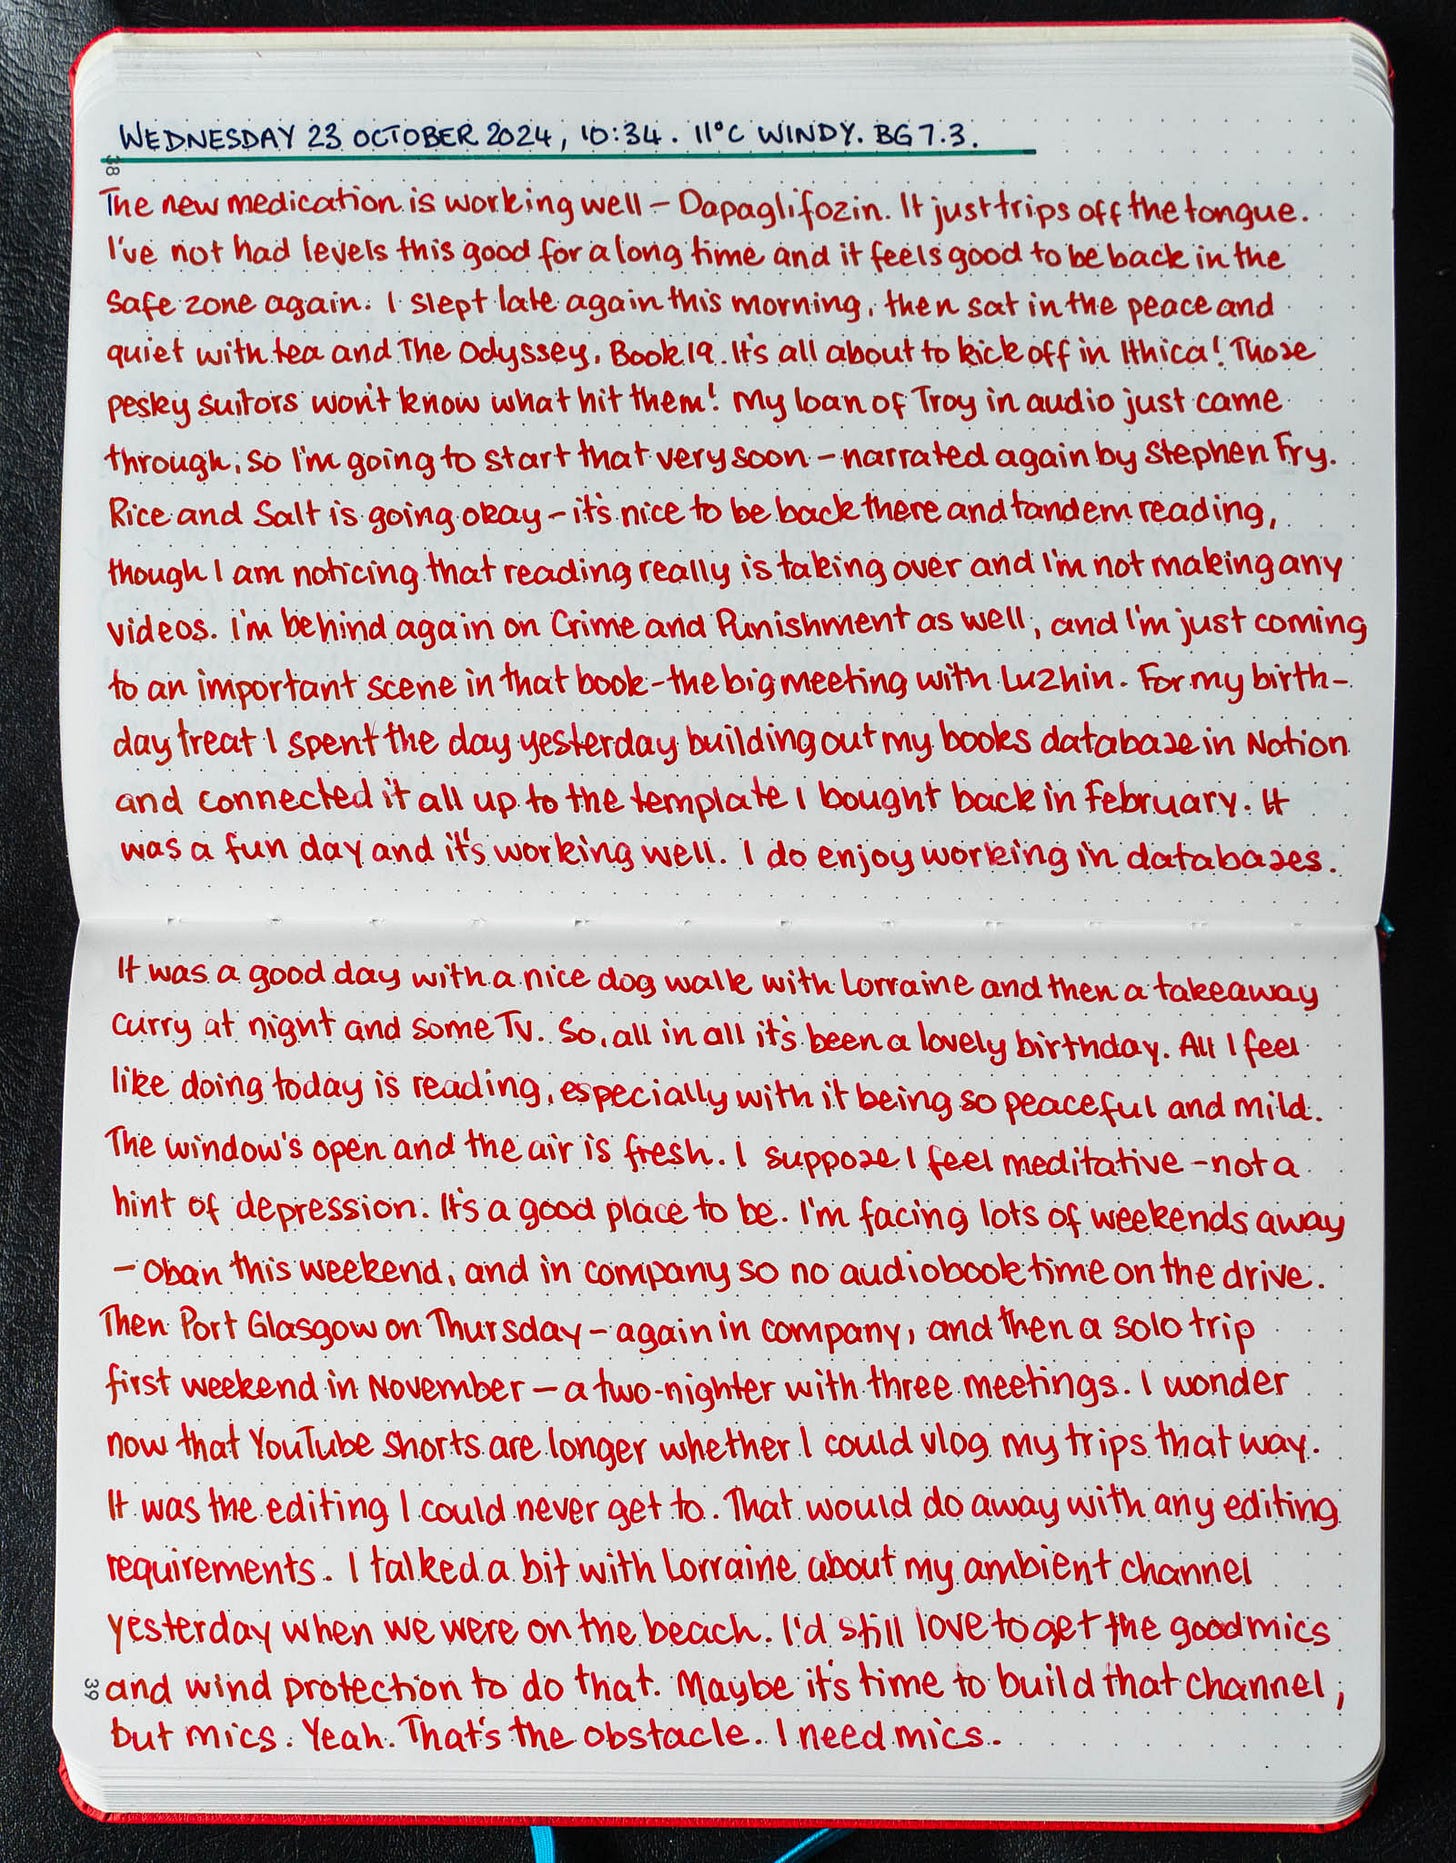 WEDNESDAY 23 OCTOBER 2024, 10:34. 11°C WINDY. BG 7.3.
38
The new medication is working well – Dapaglifozin. It just trips off the tongue.
I've not had levels this good for a long time and it feels good to be back in the
safe zone again. I slept late again this morning, then sat in the peace and
quiet with tea and The Odyssey, Book 19. It's all about to kick off in Ithica! Those
pesky suitors won't know what hit them! My loan of Troy in audio just came
through, so I'm going to start that very soon – narrated again by Stephen Fry.
Rice and Salt is going okay – it's nice to be back there and tandem reading,
though I am noticing that reading really is taking over and I'm not making any
videos. I'm behind again on Crime and Punishment as well, and I'm just coming
to an important scene in that book – the big meeting with Luzhin. For my birth-
day treat I spent the day yesterday building out my books database in Notion
and connected it all up to the template I bought back in February. It
was a fun day and it's working well. I do enjoy working in databases.
It was a good day with a nice dog walk with Lorraine and then a takeaway
curry at night and some TV. So, all in all it's been a lovely birthday. All I feel
like doing today is reading, especially with it being so peaceful and mild.
The window's open and the air is fresh. I suppose I feel meditative – not a
hint of depression. It's a good place to be. I'm facing lots of weekends away
– Oban this weekend, and in company so no audiobook time on the drive.
Then Port Glasgow on Thursday – again in company, and then a solo trip
first weekend in November – a two-nighter with three meetings. I wonder
now that YouTube shorts are longer whether I could vlog my trips that way.
It was the editing I could never get to. That would do away with any editing
requirements. I talked a bit with Lorraine about my ambient channel
yesterday when we were on the beach. I'd still love to get the good mics
and wind protection to do that. Maybe it's time to build that channel,
39
but mics. Yeah. That's the obstacle. I need mics.